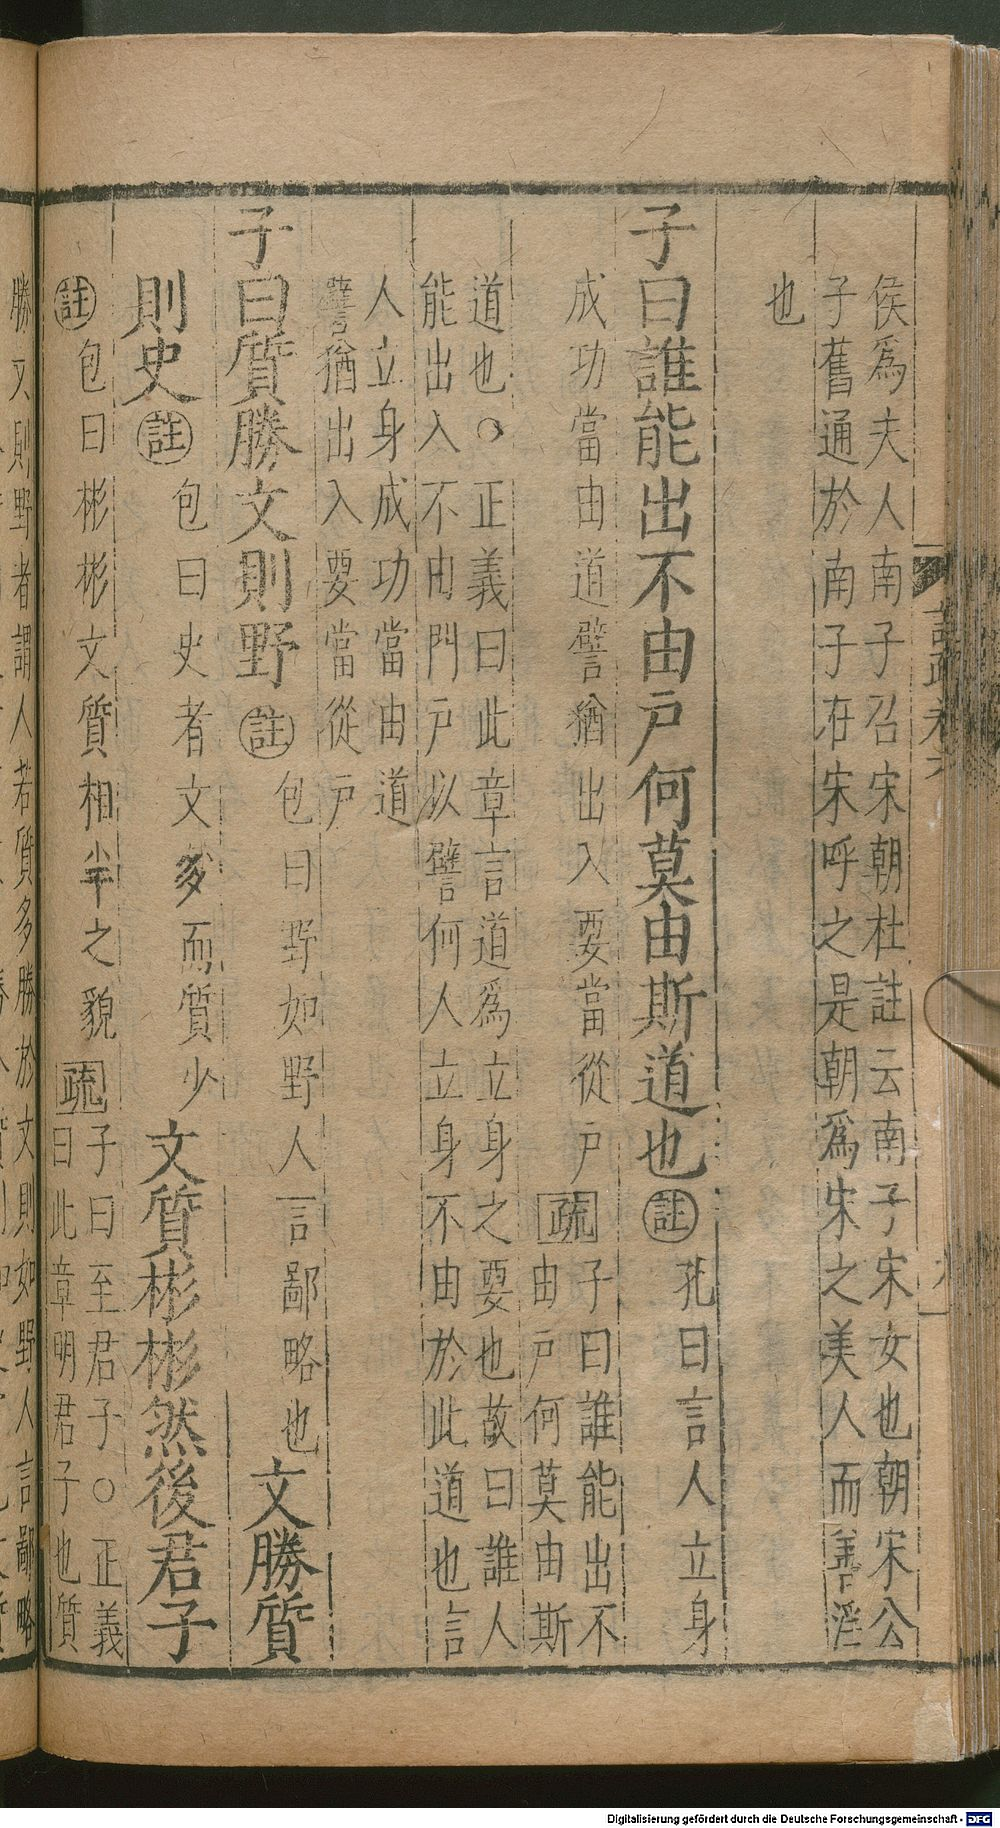 侯爲夫人南子召宋朝杜註云南子宋女也朝宋公
子舊通於南子在宋呼之是朝爲宋之美人而善淫
也
子曰誰能出不由戶何莫由斯道也註孔曰言人立身
成功當由道譬猶出入要當從戶疏子曰誰能出不
由戶何莫由斯
道也○正義曰此章言道爲立身之要也故曰誰人
能出入不由門戶以譬何人立身不由於此道也言
人立身成功當由道
譬猶出入要當從戶
子曰質勝文則野註包曰野如野人言鄙略也文勝質
則史註包曰史者文多而質少文質彬彬然後君子
註包曰彬彬文質相半之貌疏子曰至君子○正義
曰此章明君子也質
勝文則野者謂人若質多勝於文則如野人言鄙略
Digitalisierung gefördert durch die Deutsche Forschungsgemeinschaft - DFG